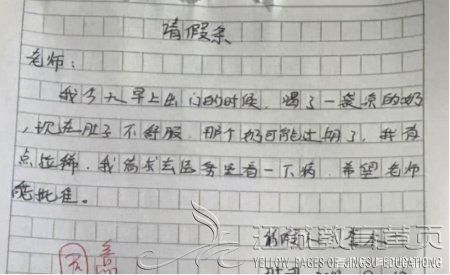 请假条
老师:
我今天早上出门的时候,喝了一袋凉的奶
,现在肚子不舒服,那个奶可能过期了,我有
点拉稀,我需要去医务室看一下病,希望老师
能批准。
江苏教育黄页
YELLOW PAGES OF JINGSU EDUCATIONG